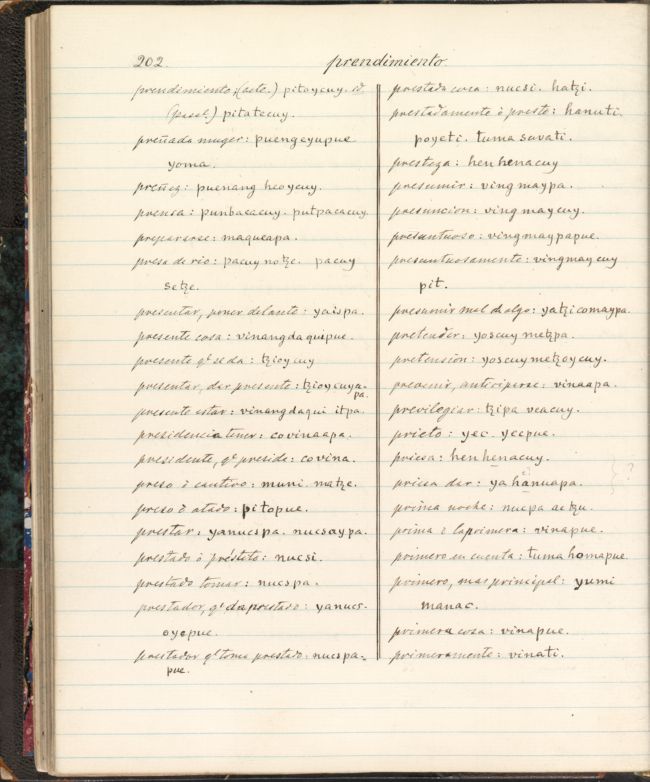 202.
prendimiento
prendimiento, (acte.) pitoycuy. id.
(pasol.) pitatecuy.
preñada muger: puengeyupue
yoma.
preñez: puenang hcoycuy.
prensa: punbacacuy. putpacacuy.
prepararse: maqueapa.
presa de rio: pacuy notze. pacuy
setze.
presentar, poner delante: yaispa.
presente cosa: vinangdaquipue.
presente qe. se da: tzioycuy
presentar, dar presente: tzioycuya-
pa.
presente estar: vinangdaqui itpa.
presidencia tener: covinaapa.
presidente, qe. preside: covina.
preso ó cautivo: muni. matze.
preso ó atado: pitopue.
prestar: yanucspa. nucsaypa.
prestado ó préstito: nucsi.
prestado tomar: nucspa.
prestador, qe. da prestado: yanucs-
oyepue.
prestador qe. toma prestado: nucspa-
pue.
prestada cosa: nucsi. hatzi.
prestadamente ó presto: hanuti.
poyeti. tumasavati.
presteza: henhenacuy
presumir: vingmaypa.
presuncion: vingmaycuy.
presuntuoso: vingmaypapue.
presuntuosamente: vingmaycuy
pit.
presumir mal de algo: yatzicomaypa.
pretender: yoscuy metzpa.
pretension: yoscuymetzoycuy.
prevenir, anticiparse: vinaapa.
previlegiar: tzipa veacuy.
prieto: yec. yecpue.
priesa: henhenacuy.
priesa dar: yahanuapa. ?
prima noche: nucpa aetzu.
prima ó la primera: vinapue.
primero en cuenta: tumahomapue.
primero, mas principal: yumi
manac.
primera cosa: vinapue.
primeramente: vinati.